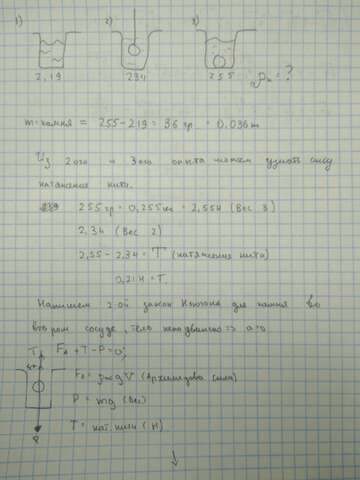 1) 2) 3)
2,19 234 255 ρк = ?
m камня = 255 - 219 = 36 гр = 0.036
Из 2ого и 3ого опыта можем узнать силу
натяжения нити.
255 гр = 0,255 кг = 2,55Н (Вес 3)
2,34 (Вес 2)
2,55 - 2,34 = T (натяжения нити)
0,21Н = T.
Напишем 2-ой закон Ньютона для камня во
втором сосуде, тело неподвижно => a=0
T FA + T - P = 0;
FA = ρжgV (Архимедова сила)
P = mg (Вес)
T = нат. нити (Н)
P